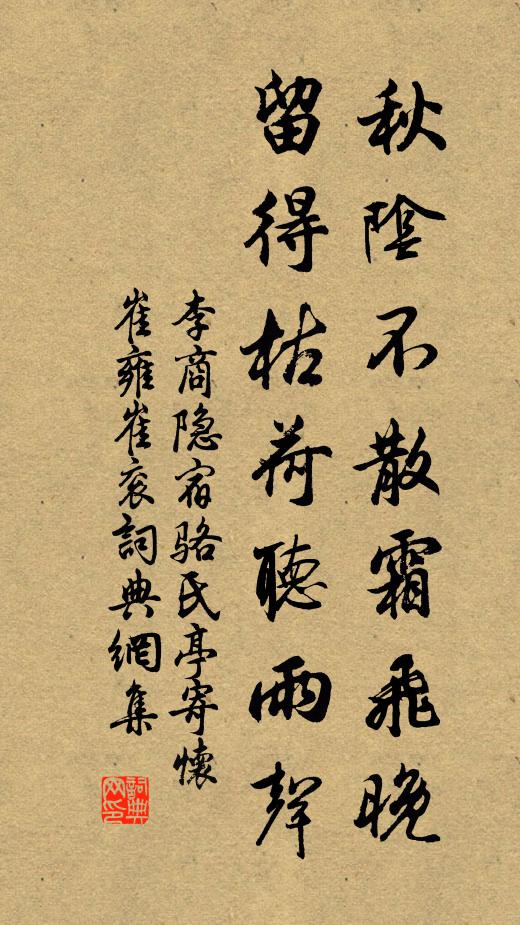 秋陰不散霜飛晚
留得枯荷聽雨聲
李商隐宿骆氏亭寄懷
崔雍崔衮詞典網集
詞典
网印